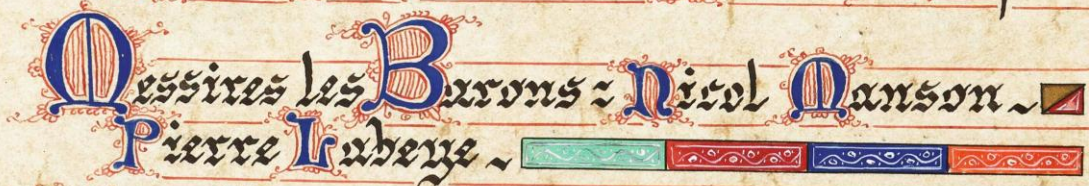 Messires les Barons : Nicol Manson ~
Pierre Labeye ~